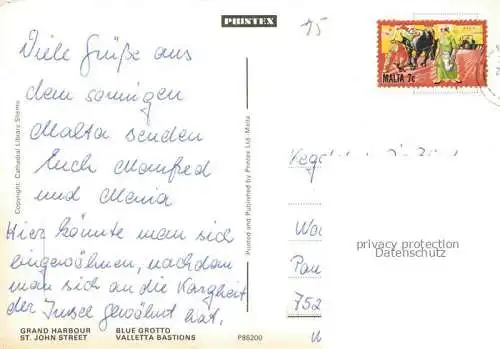 PRINTEX
15
MALTA 7c
Viele Grüße aus
dem sonnigen
Malta senden
Euch Manfred
und Maria
Hier könnte man sich
eingewöhnen, nachdem
man sich an die Kargheit
der Insel gewöhnt hat.
Copyright: Cathedral Library Sliema
Printed and Published by Printex Ltd - Malta
privacy protection
Datenschutz
752
GRAND HARBOUR BLUE GROTTO
ST. JOHN STREET VALLETTA BASTIONS P85200